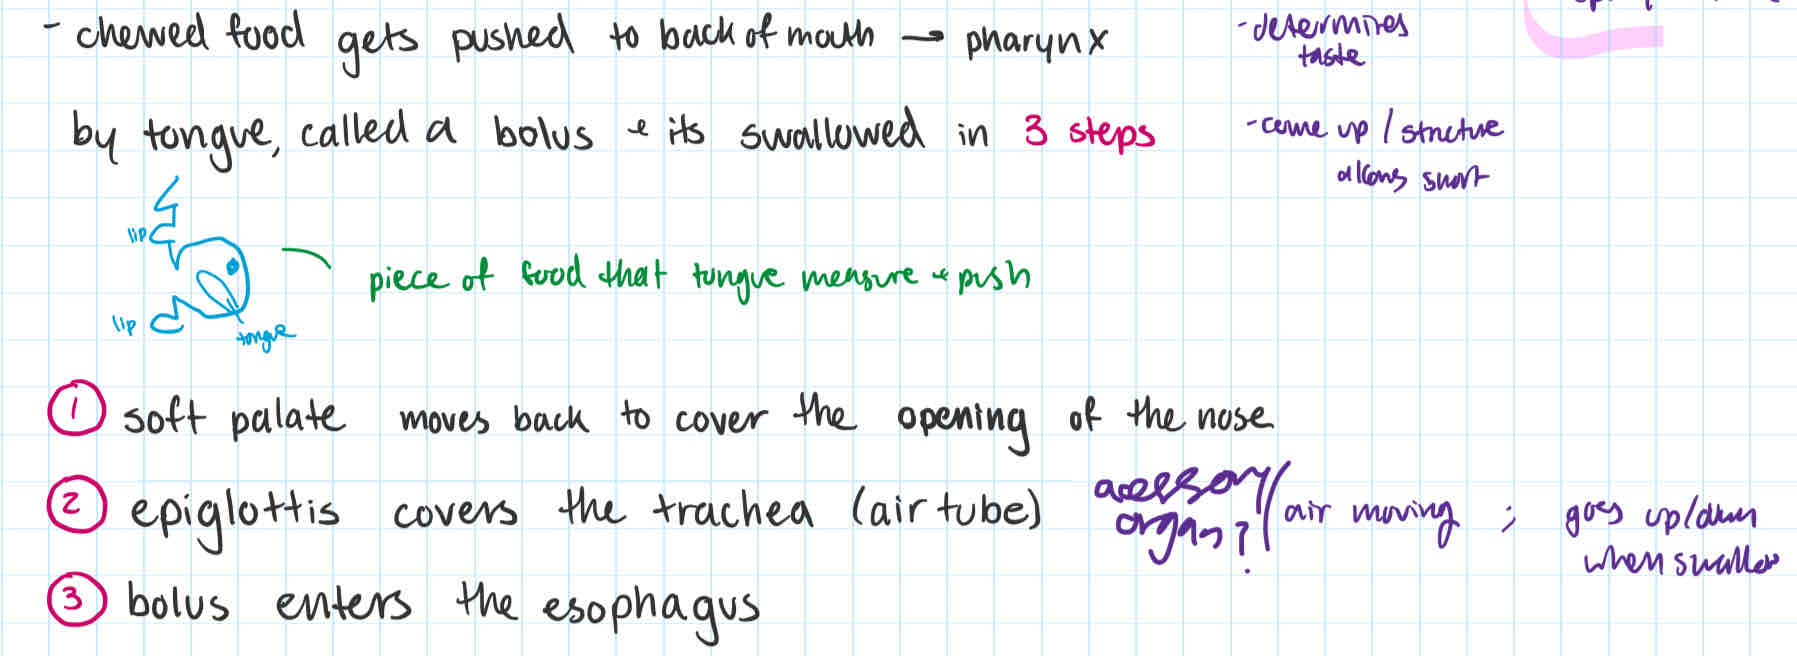 - chewed food gets pushed to back of mouth → pharynx
- determines
taste
by tongue, called a bolus + its swallowed in 3 steps
- come up / structure
allows snort
lip
piece of food that tongue measure + push
lip
tongue
① soft palate moves back to cover the opening of the nose
② epiglottis covers the trachea (air tube)
acessory
organ?
/ air moving ; goes up/down
when swallow
③ bolus enters the esophagus